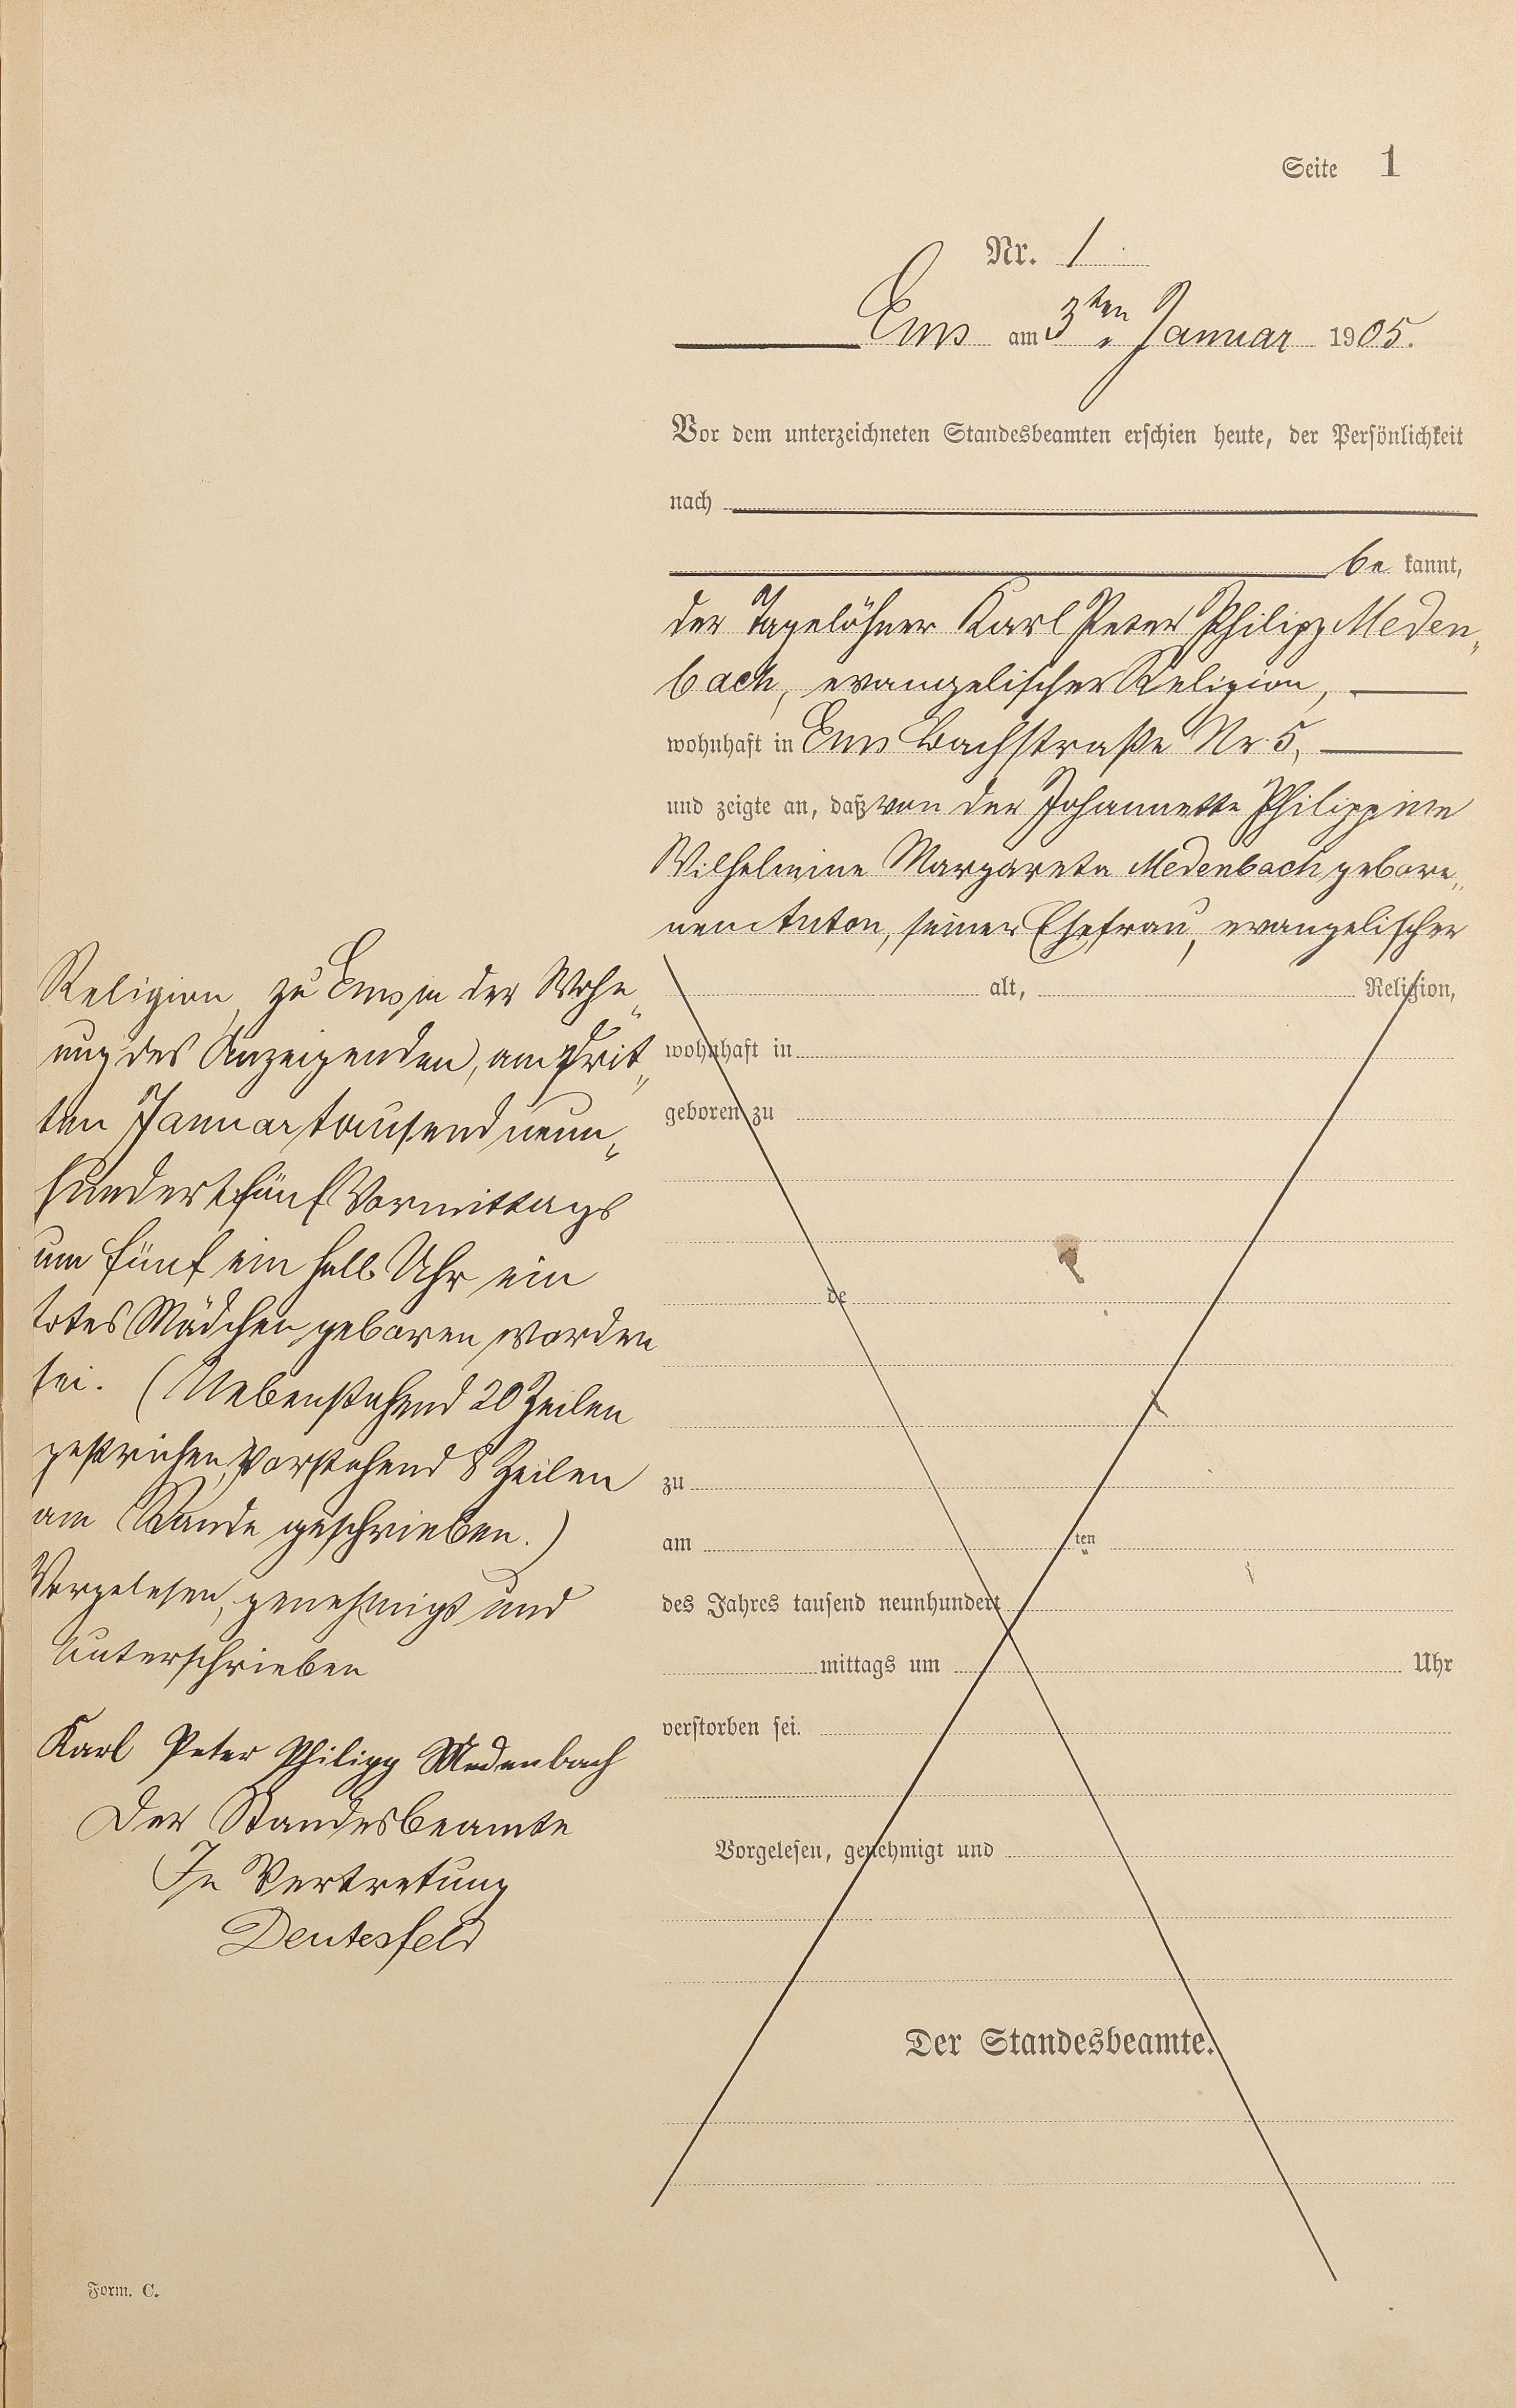 Seite 1
Nr. 1
Ems am 3ten Januar 1905.
Vor dem unterzeichneten Standesbeamten erschien heute, der Persönlichkeit
nach
be kannt,
der Tagelöhner Karl Peter Philipp Meden„
bach, evangelischer Religion,
wohnhaft in Ems Bachstraße Nr. 5,
und zeigte an, daß von der Johannette Philippine
Wilhelmine Margareta Medenbach gebore„
nen Anton, seiner Ehefrau, evangelischer
Religion, zu Ems in der Wohn„
ung des Anzeigenden, am drit„
ten Januar tausend neun„
hundert fünf Vormittags
um fünf ein halb Uhr ein
totes Mädchen geboren worden
sei. (Nebenstehend 20 Zeilen
gestrichen, Vorstehend 8 Zeilen
am Rande geschrieben.)
Vorgelesen, genehmigt und
unterschrieben
Karl Peter Philipp Medenbach
Der Standesbeamte
In Vertretung
Deutesfeld
alt, Religion,
wohnhaft in
geboren zu
de
zu
am ten
des Jahres tausend neunhundert
mittags um Uhr
verstorben sei.
Vorgelesen, genehmigt und
Der Standesbeamte.
Form. C.